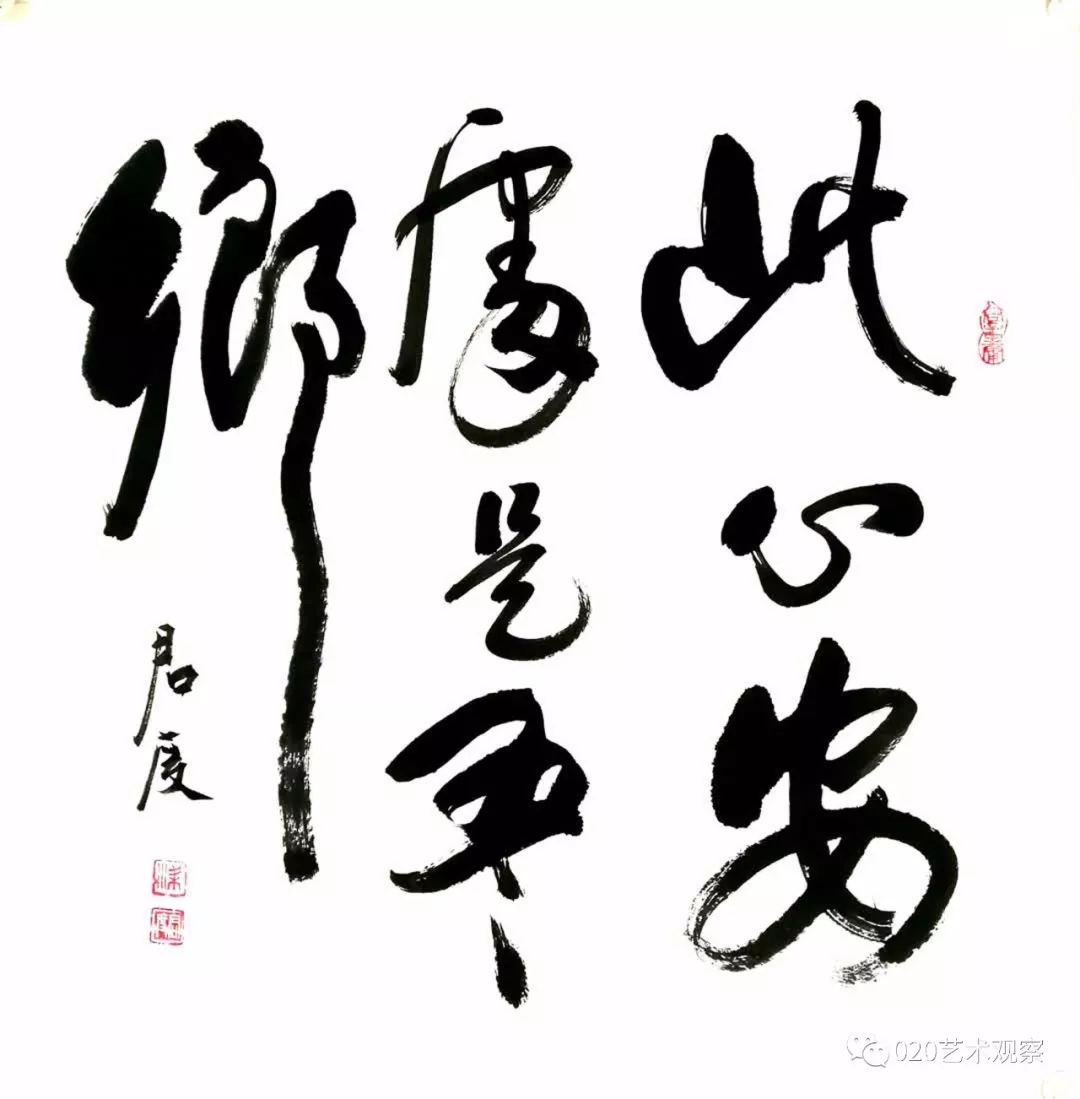 此心安
處是吾
鄉
君度
020艺术观察